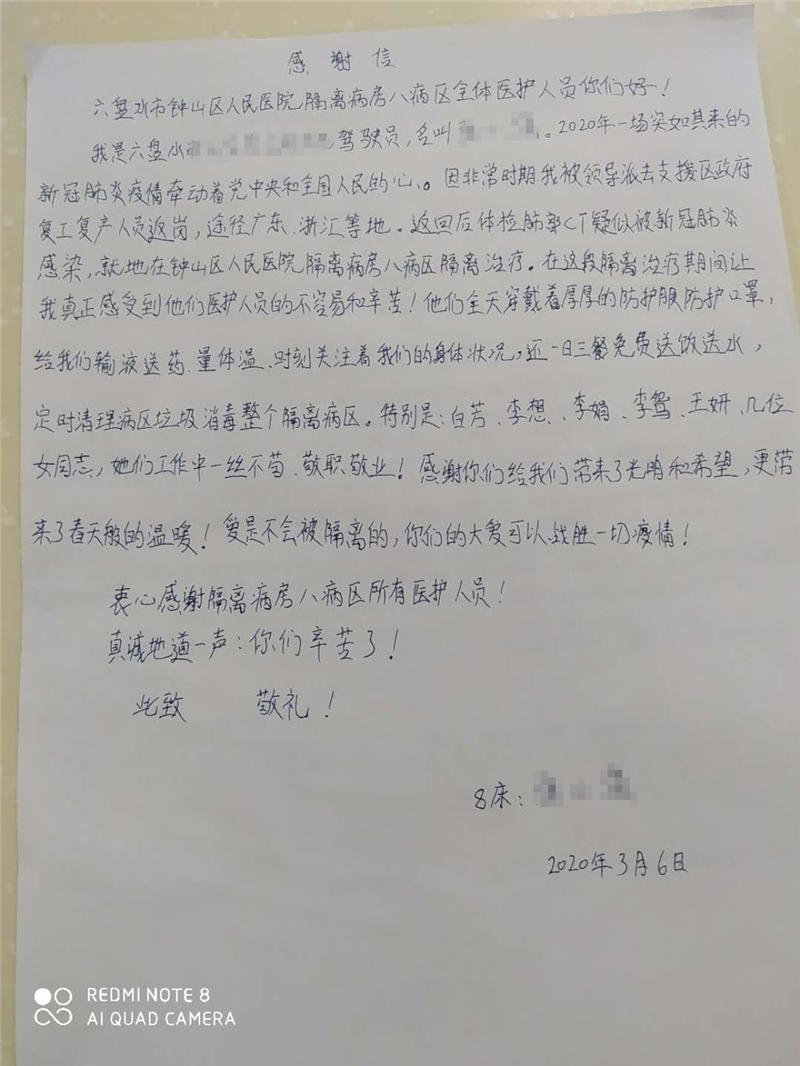 感谢信
六盘水市钟山区人民医院隔离病房八病区全体医护人员你们好！
我是六盘水 驾驶员，名叫 。2020年一场突如其来的
新冠肺炎疫情牵动着党中央和全国人民的心。因非常时期我被领导派去支援区政府
复工复产人员返岗，途径广东、浙江等地。返回后体检肺部CT疑似被新冠肺炎
感染，就地在钟山区人民医院隔离病房八病区隔离治疗。在这段隔离治疗期间让
我真正感受到他们医护人员的不容易和辛苦！他们全天穿戴着厚厚的防护服防护口罩，
给我们输液送药、量体温、时刻关注着我们的身体状况，还一日三餐免费送饭送水，
定时清理病区垃圾消毒整个隔离病区。特别是：白芳、李想、李娟、李鸳、王妍、几位
女同志，她们工作中一丝不苟、敬职敬业！感谢你们给我们带来了光明和希望，更带
来了春天般的温暖！爱是不会被隔离的，你们的大爱可以战胜一切疫情！
衷心感谢隔离病房八病区所有医护人员！
真诚地道一声：你们辛苦了！
此致 敬礼！
8床：
2020年3月6日
REDMI NOTE 8
AI QUAD CAMERA